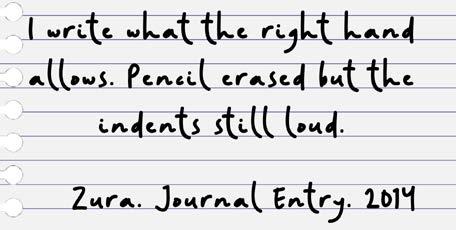 I write what the right hand
allows. Pencil erased but the
indents still loud.
Zura. Journal Entry. 2014